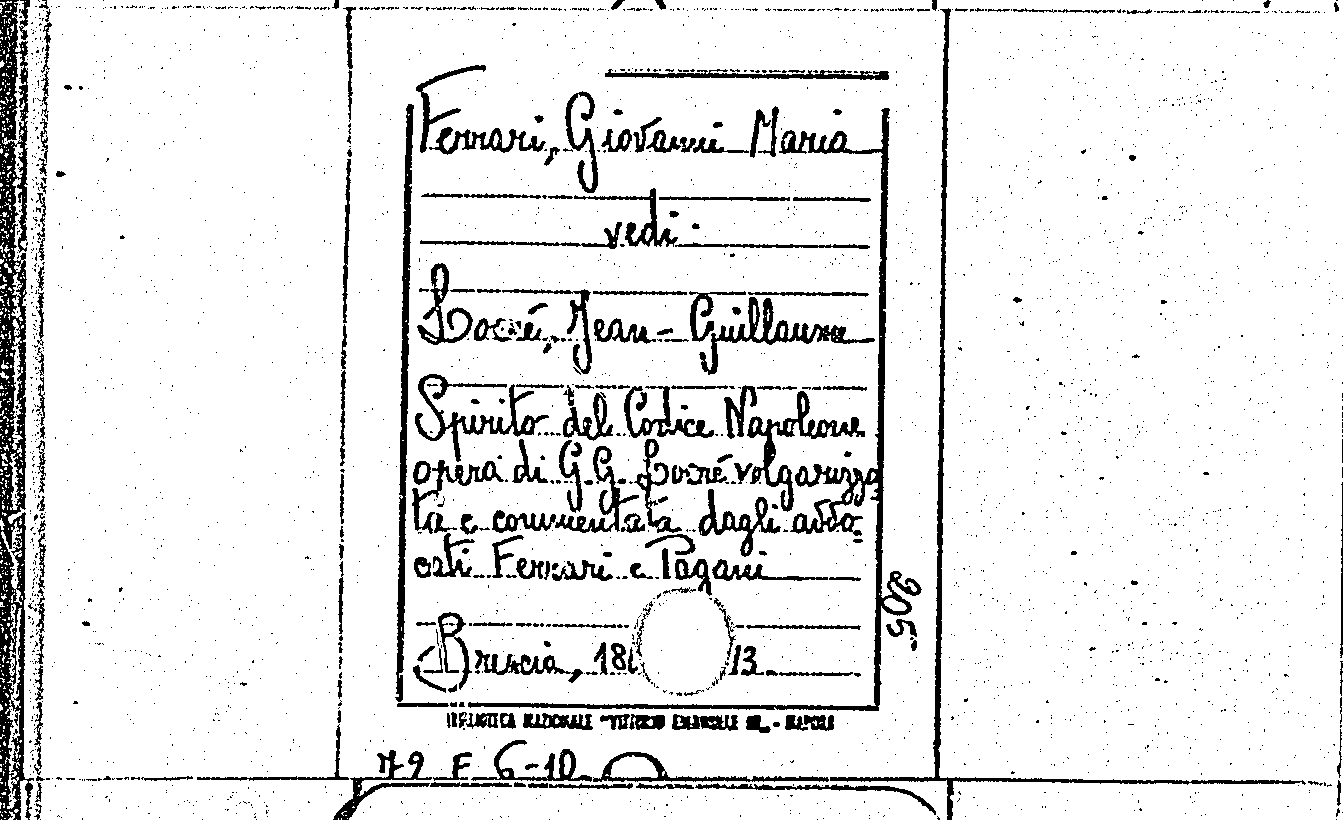 Ferrari, Giovanni Maria
vedi
Locré, Jean-Guillaume
Spirito del Codice Napoleone
opera di G.G. Locré volgarizza
ta e commentata dagli avvo=
cati Ferrari e Pagani
Brescia, 180 13.
205
BIBLIOTECA NAZIONALE "VITTORIO EMANUELE III" - NAPOLI
79 F 6-10